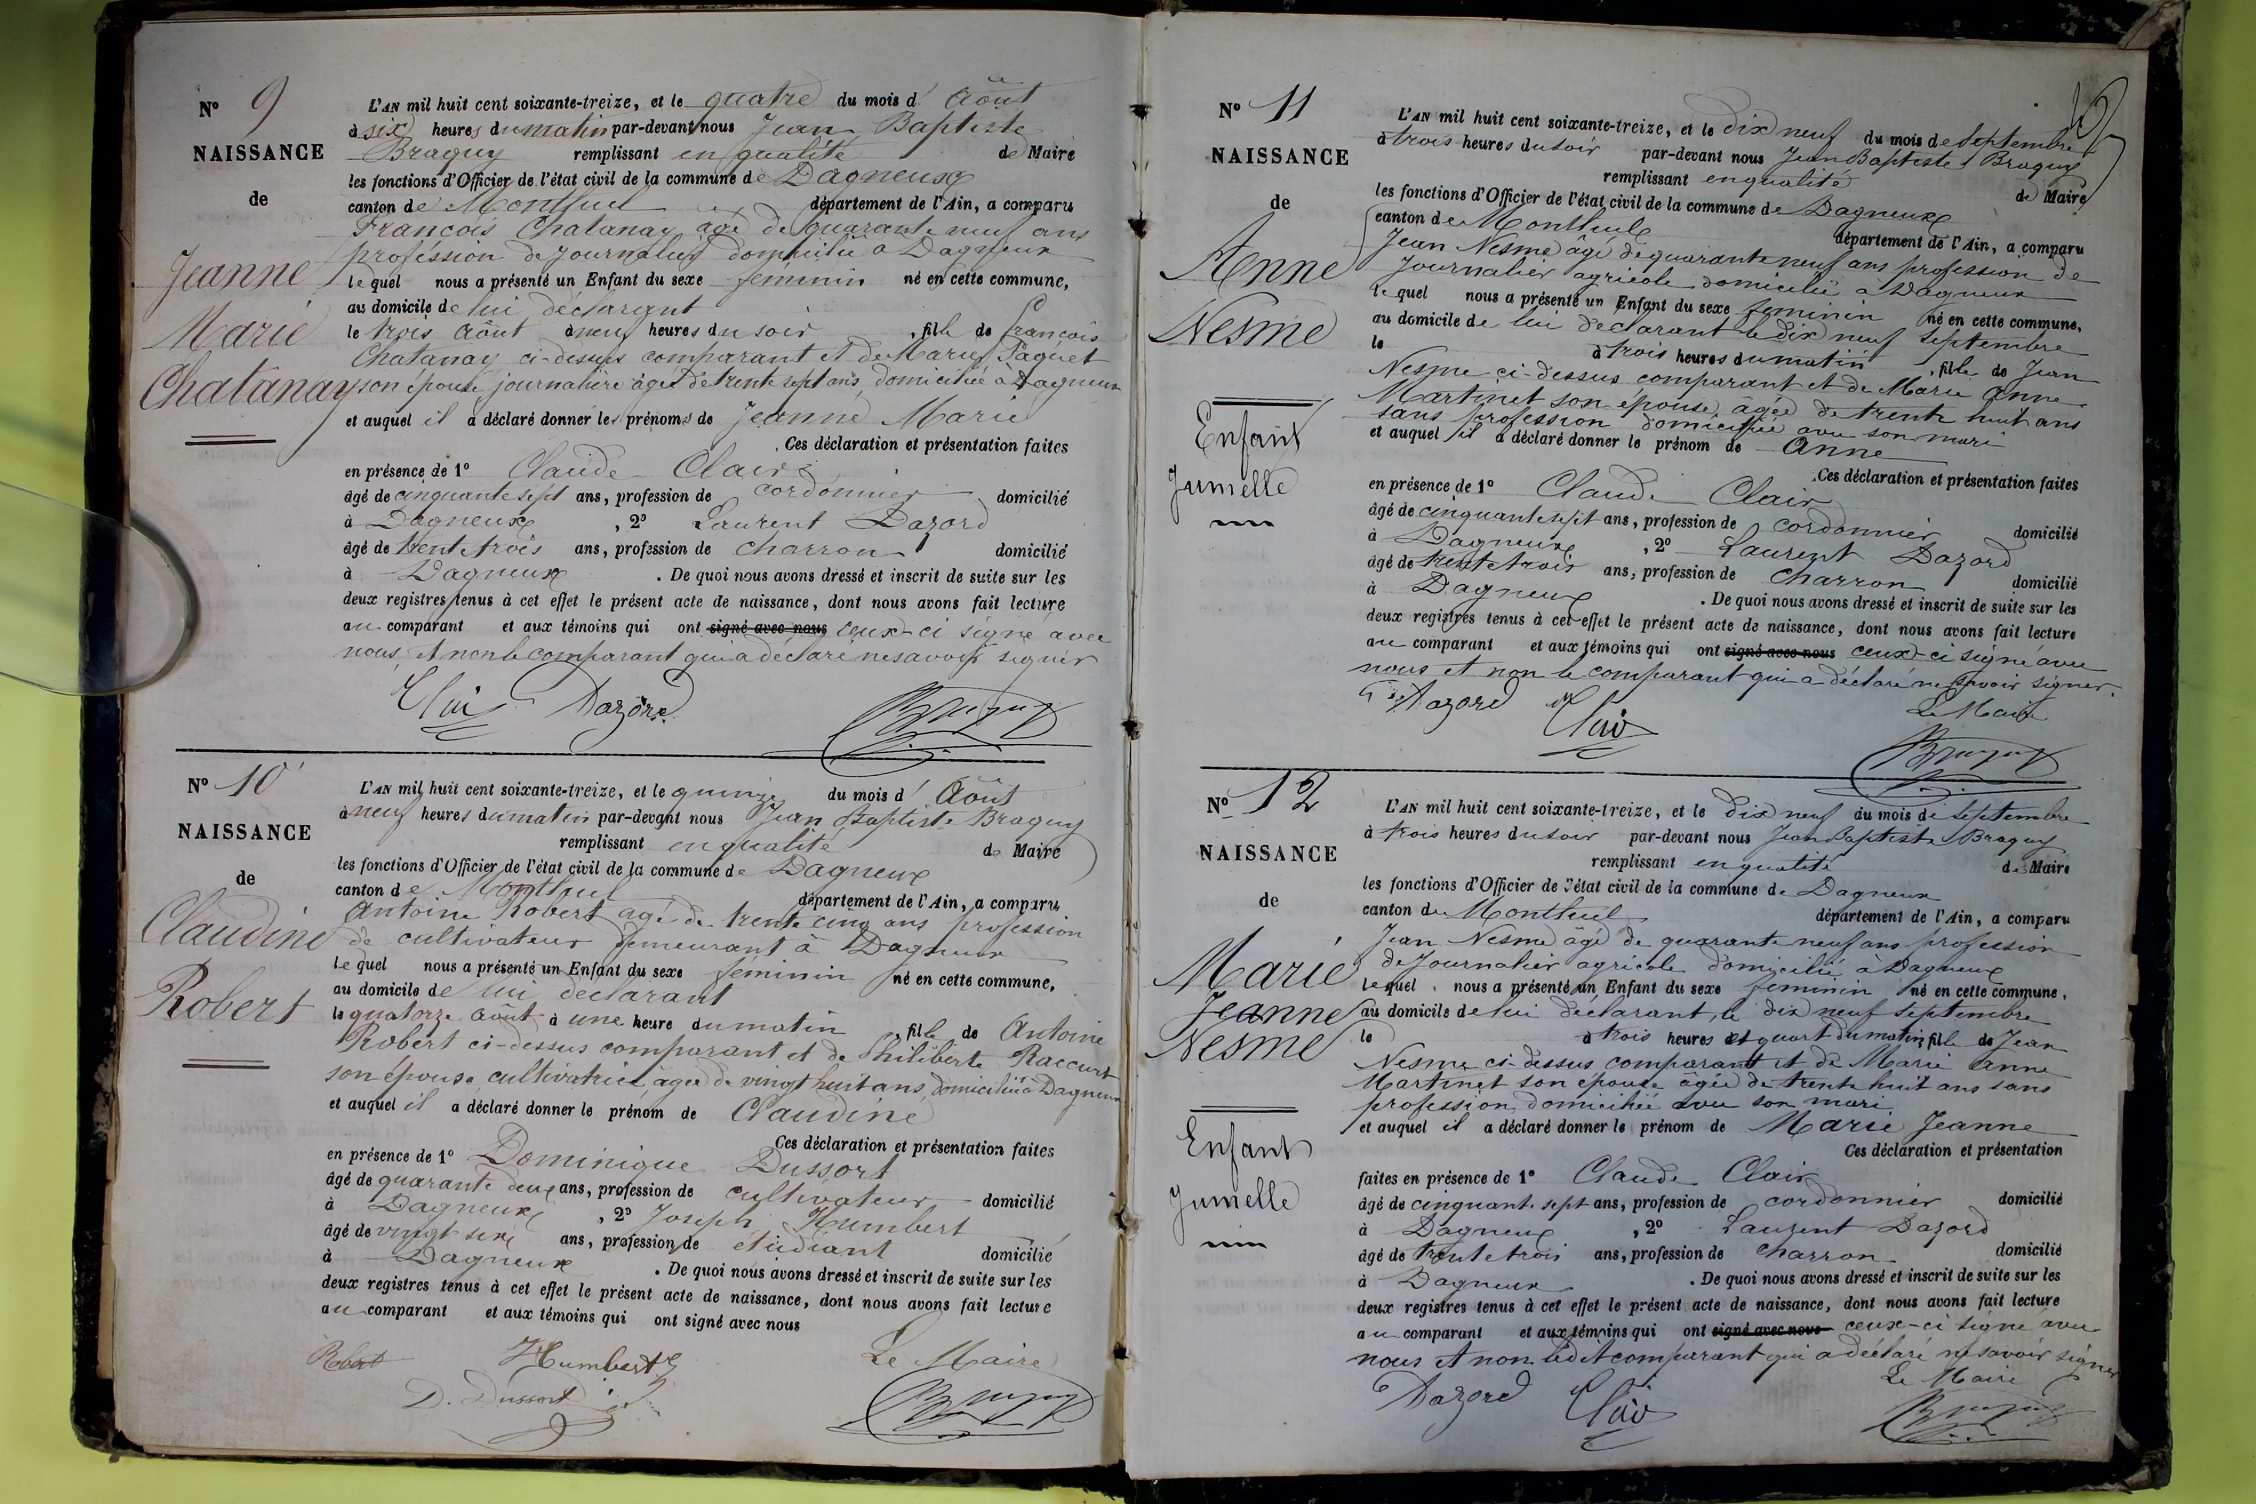 N° 9
NAISSANCE
de
Jeanne
Marie
Chatanay
L'AN mil huit cent soixante-treize, et le quatre du mois d' Août
à six heures du matin par-devant nous Jean Baptiste
Braguy remplissant en qualité de Maire
les fonctions d'Officier de l'état civil de la commune de Dagneux
canton de Montluel département de l'Ain, a comparu
François Chatanay âgé de quarante neuf ans
profession de journalier domicilié à Dagneux
lequel nous a présenté un Enfant du sexe feminin né en cette commune,
au domicile de lui déclarant
le trois Août à neuf heures du soir , fille de François
Chatanay ci-dessus comparant et de Marie Paquet
son épouse, journalière âgée de trente sept ans, domiciliée à Dagneux
et auquel il a déclaré donner les prénoms de Jeanne Marie
. Ces déclaration et présentation faites
en présence de 1° Claude Clair
âgé de cinquante sept ans, profession de cordonnier domicilié
à Dagneux , 2° Laurent Dazord
âgé de trente trois ans, profession de charron domicilié
à Dagneux . De quoi nous avons dressé et inscrit de suite sur les
deux registres tenus à cet effet le présent acte de naissance, dont nous avons fait lecture
au comparant et aux témoins qui ont signé avec nous ceux-ci signé avec
nous, et non le comparant qui a déclaré ne savoir signer
Clair Dazord Braguy
N° 10
NAISSANCE
de
Claudine
Robert
L'AN mil huit cent soixante-treize, et le quinze du mois d' Août
à neuf heures du matin par-devant nous Jean Baptiste Braguy
remplissant en qualité de Maire
les fonctions d'Officier de l'état civil de la commune de Dagneux
canton de Montluel département de l'Ain, a comparu
Antoine Robert âgé de trente cinq ans profession
de cultivateur demeurant à Dagneux
lequel nous a présenté un Enfant du sexe féminin né en cette commune,
au domicile de lui déclarant
le quatorze Août à une heure du matin , fille de Antoine
Robert ci-dessus comparant et de Philiberte Raccurt
son épouse cultivatrice âgée de vingt huit ans, domiciliée à Dagneux
et auquel il a déclaré donner le prénom de Claudine
Ces déclaration et présentation faites
en présence de 1° Dominique Dussort
âgé de quarante deux ans, profession de cultivateur domicilié
à Dagneux , 2° Joseph Humbert
âgé de vingt six ans, profession de étudiant domicilié
à Dagneux . De quoi nous avons dressé et inscrit de suite sur les
deux registres tenus à cet effet le présent acte de naissance, dont nous avons fait lecture
au comparant et aux témoins qui ont signé avec nous
Robert Humbert Le Maire
D. Dussort Braguy
N° 11
NAISSANCE
de
Anne
Nesme
Enfant
Jumelle
L'AN mil huit cent soixante-treize, et le dix neuf du mois de Septembre
à trois heures du soir par-devant nous Jean Baptiste Braguy
remplissant en qualité de Maire
les fonctions d'Officier de l'état civil de la commune de Dagneux
canton de Montluel département de l'Ain, a comparu
Jean Nesme âgé de quarante neuf ans profession de
journalier agricole domicilié à Dagneux
lequel nous a présenté un Enfant du sexe féminin né en cette commune,
au domicile de lui déclarant le dix neuf Septembre
le à trois heures du matin , fille de Jean
Nesme ci-dessus comparant et de Marie Anne
Martinet son épouse, âgée de trente huit ans
sans profession domiciliée avec son mari
et auquel il a déclaré donner le prénom de Anne
. Ces déclaration et présentation faites
en présence de 1° Claude Clair
âgé de cinquante sept ans, profession de cordonnier domicilié
à Dagneux , 2° Laurent Dazord
âgé de trente trois ans, profession de charron domicilié
à Dagneux . De quoi nous avons dressé et inscrit de suite sur les
deux registres tenus à cet effet le présent acte de naissance, dont nous avons fait lecture
au comparant et aux témoins qui ont signé avec nous ceux-ci signé avec
nous et non le comparant qui a déclaré ne savoir signer.
Dazord Clair Le Maire
Braguy
N° 12
NAISSANCE
de
Marie
Jeanne
Nesme
Enfant
Jumelle
L'AN mil huit cent soixante-treize, et le dix neuf du mois de Septembre
à trois heures du soir par-devant nous Jean Baptiste Braguy
remplissant en qualité de Maire
les fonctions d'Officier de l'état civil de la commune de Dagneux
canton de Montluel département de l'Ain, a comparu
Jean Nesme âgé de quarante neuf ans profession
de journalier agricole domicilié à Dagneux
lequel nous a présenté un Enfant du sexe feminin né en cette commune,
au domicile de lui déclarant, le dix neuf Septembre
le à trois heures et quart du matin, fille de Jean
Nesme ci-dessus comparant et de Marie Anne
Martinet son épouse âgée de trente huit ans sans
profession domiciliée avec son mari
et auquel il a déclaré donner le prénom de Marie Jeanne
Ces déclaration et présentation
faites en présence de 1° Claude Clair
âgé de cinquante sept ans, profession de cordonnier domicilié
à Dagneux , 2° Laurent Dazord
âgé de trente trois ans, profession de charron domicilié
à Dagneux . De quoi nous avons dressé et inscrit de suite sur les
deux registres tenus à cet effet le présent acte de naissance, dont nous avons fait lecture
au comparant et aux témoins qui ont signé avec nous ceux-ci signé avec
nous et non ledit comparant qui a déclaré ne savoir signer
Le Maire
Dazord Clair Braguy